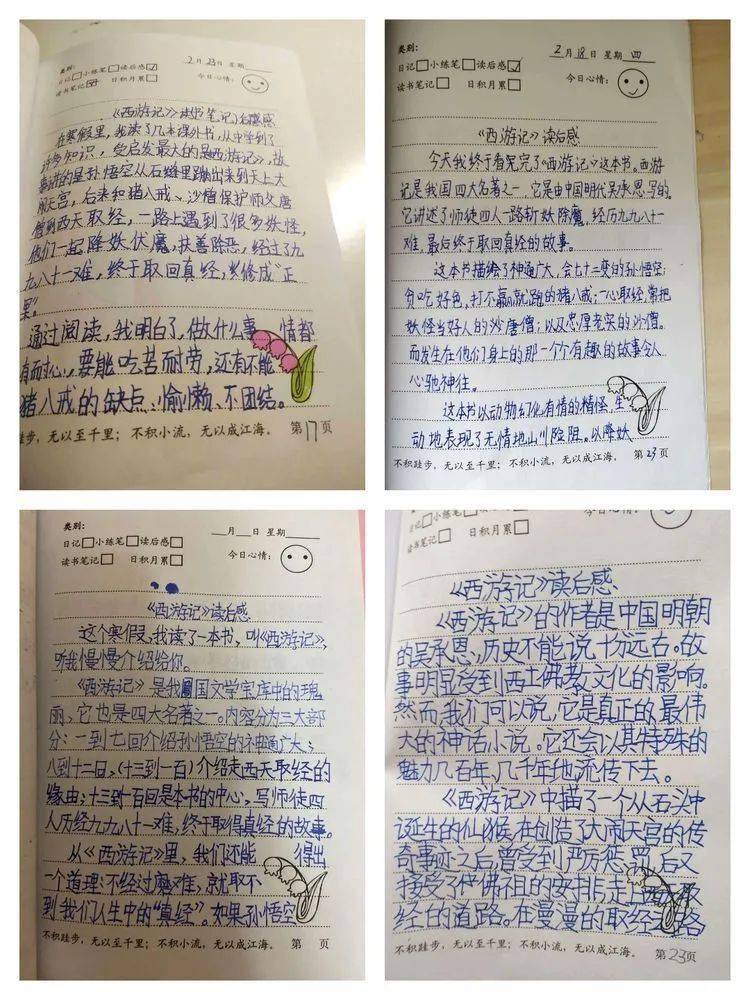 类别：
2月23日 星期
日记□小练笔□读后感☑
读书笔记☑ 日积月累□
今日心情：
《西游记》读书笔记后感
在寒假里，我读了几本课外书，从中学到了
许多知识，受启发最大的是西游记》，故
事讲的是孙悟空从石缝里蹦出来到天上大
闹天宫，后来和猪八戒、沙僧保护师父唐
僧到西天取经，一路上遇到了很多妖怪，
他们一起降妖伏魔，扶善除恶，经过了九
九八十一难，终于取回真经，修成"正
果"。
通过阅读，我明白了，做什么事 情都
有耐心，要能吃苦而耐劳，还有不能
猪八戒的缺点：偷懒、不团结。
跬步，无以至千里；不积小流，无以成江海。 第17页
类别：
2月18日 星期四
日记□小练笔□读后感☑
读书笔记□ 日积月累□
今日心情：
《西游记》读后感
今天我终于看完了《西游记》这本书。西游
记是我国四大名著之一，它是由中国明代吴承恩写的。
它讲述了师徒四人一路斩妖除魔，经历九九八十一
难，最后终于取回真经的故事。
这本书描绘了神通广大，会七十二变的孙悟空；
贪吃好色，打不赢就跑的猪八戒；一心取经常把
妖怪当好人的唐僧；以及忠厚老实的沙僧。
而发生在他们身上的那一个个有趣的故事令人
心驰神往。
这本书以动物幻化有情的精怪，生
动地表现了无情地山川险阻。以降妖
不积跬步，无以至千里；不积小流，无以成江海。 第23页
类别：
月 日 星期
日记□小练笔□读后感□
读书笔记□ 日积月累□
今日心情：
《西游记》读后感
这个寒假，我读了一本书，叫《西游记》，
听我慢慢介绍给你。
《西游记》是我国文学宝库中的瑰
丽，它也是四大名著之一。内容分为三大部
分：一到七回介绍孙悟空的神通广大；
八到十二回，(十三到一百)介绍走西天取经的
缘由；十三到一百回是本书的中心，写师徒四
人历经九九八十一难，终于取得真经的故事。
从《西游记》里，我们还能 得出
一个道理：不经过磨难，就取不
到我们人生中的"真经"。如果孙悟空
不积跬步，无以至千里；不积小流，无以成江海。 第 页
日记□小练笔□读后感□
读书笔记□ 日积月累□
今日心情：
《西游记》读后感
《西游记》的作者是中国明朝
的吴承恩，历史不能说十分远古。故
事明显受到西土佛教文化的影响。
然而我们可以说，它是真正的最伟
大的神话小说。它还会以其特殊的
魅力几百年，几千年地流传下去。
《西游记》中描了一个从石头中
诞生的仙猴，在创造了大闹天宫的传
奇事迹之后，曾受到严厉惩罚，后又
接受了佛祖的安排走上西 取
经的道路。在漫漫的取经之路
不积跬步，无以至千里；不积小流，无以成江海。 第23页